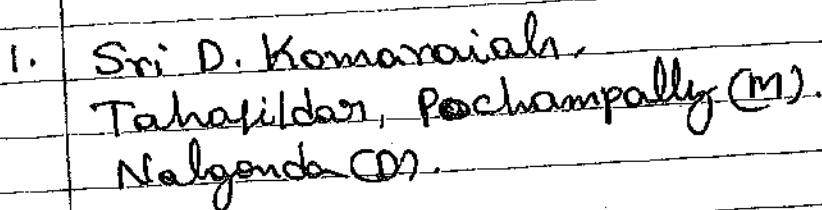 1. Sri D. Komaraiah,
Tahasildar, Pochampally (M).
Nalgonda (D).